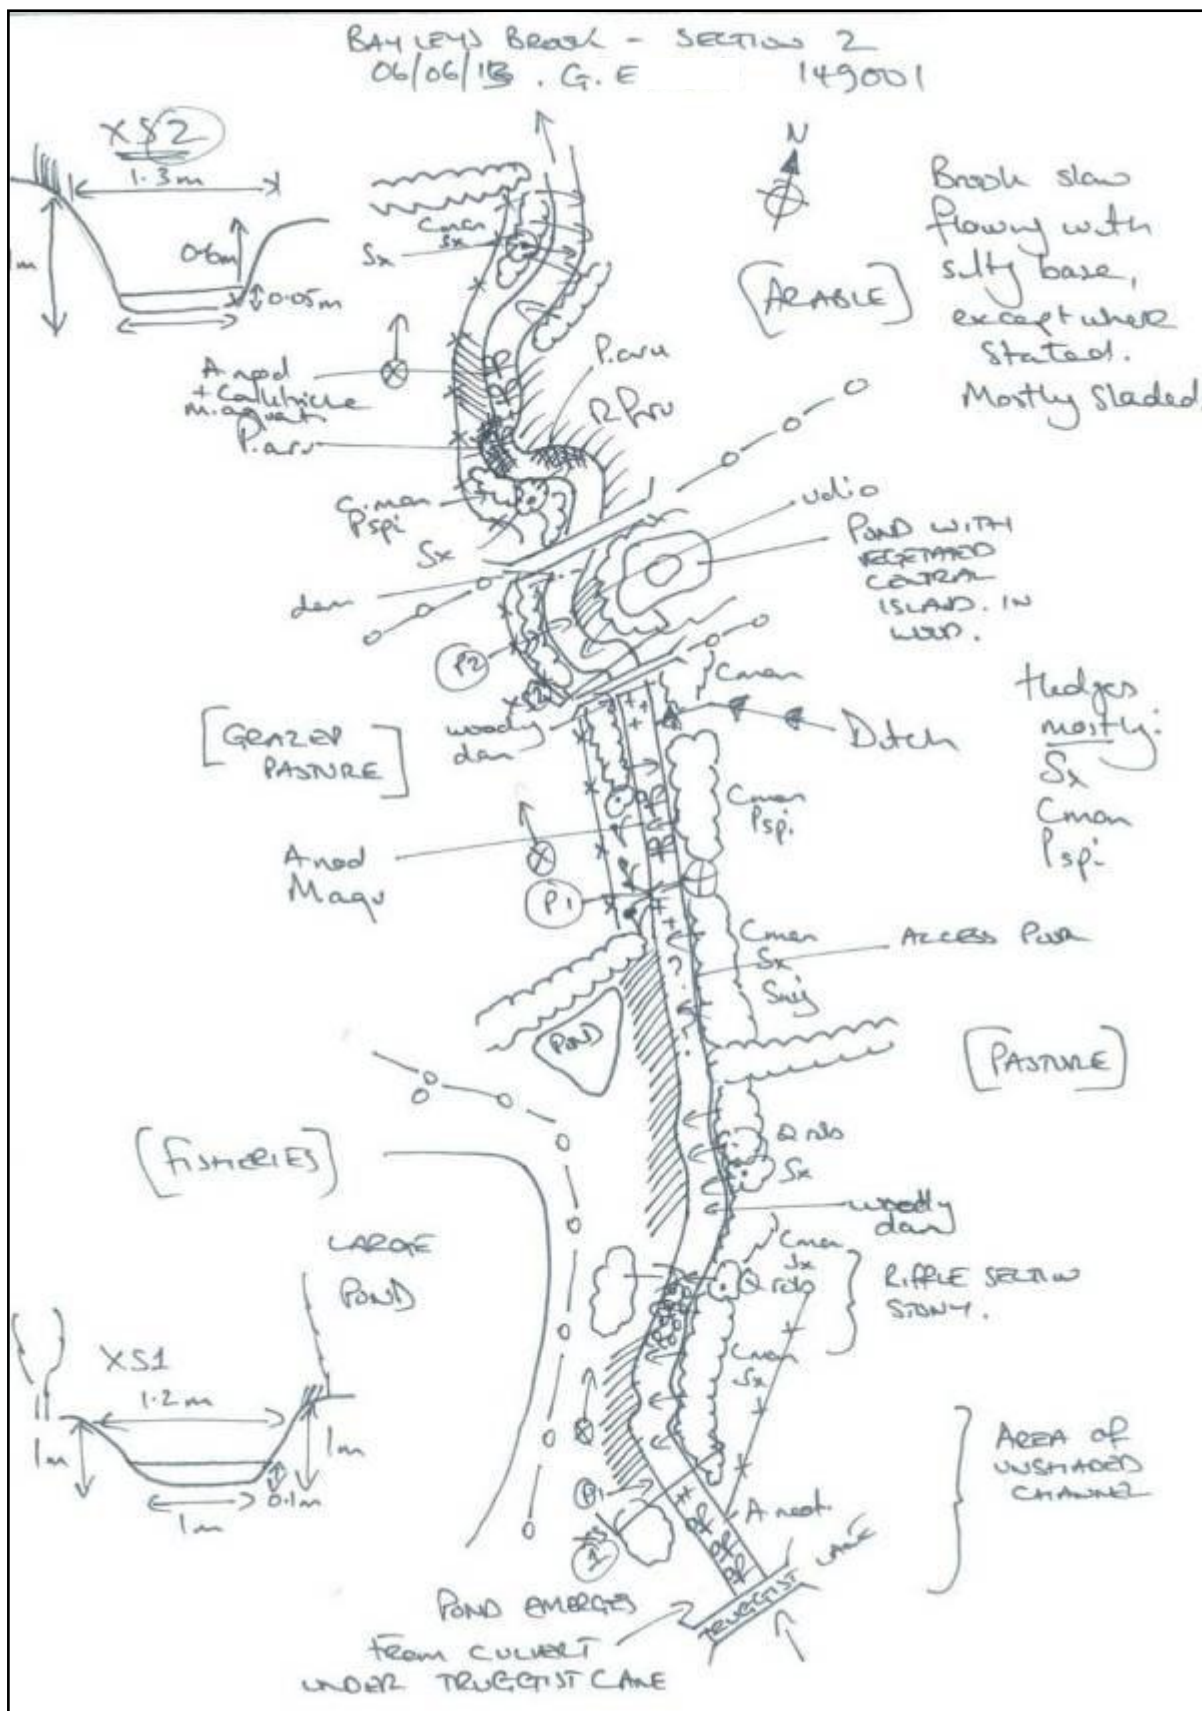 BAYLEYS BROOK - SECTION 2
06/06/13. G.E 149001
XS2
1.3m
0.6m
0.05m
N
Brook slow
flowing with
silty base,
except where
stated.
Mostly shaded
[ARABLE]
Cman
Sx
Sx
A.nod
+ Callitriche
M.aquat
P.aru
P.aru
R
P.aru
C.man
Pspi
Sx
dam
P2
POND WITH
VEGETATED
CENTRAL
ISLAND. IN
WOOD.
Cman
woody
dam
Ditch
[GRAZED
PASTURE]
Hedges
mostly:
Sx
Cman
Pspi
Cman
Pspi.
A nod
Maqu
P1
Cman
Sx
Snig
POND
[PASTURE]
[FISHERIES]
Q rob
Sx
woody
dam
LARGE
POND
Cman
Sx
Q rob
RIFFLE SECTION
STONY.
Cman
Sx
XS1
1.2m
1m
1m
0.1m
1m
AREA OF
UNSHADED
CHANNEL
1
POND EMERGES
FROM CULVERT
UNDER TRUGGIST LANE
TRUGGIST LANE